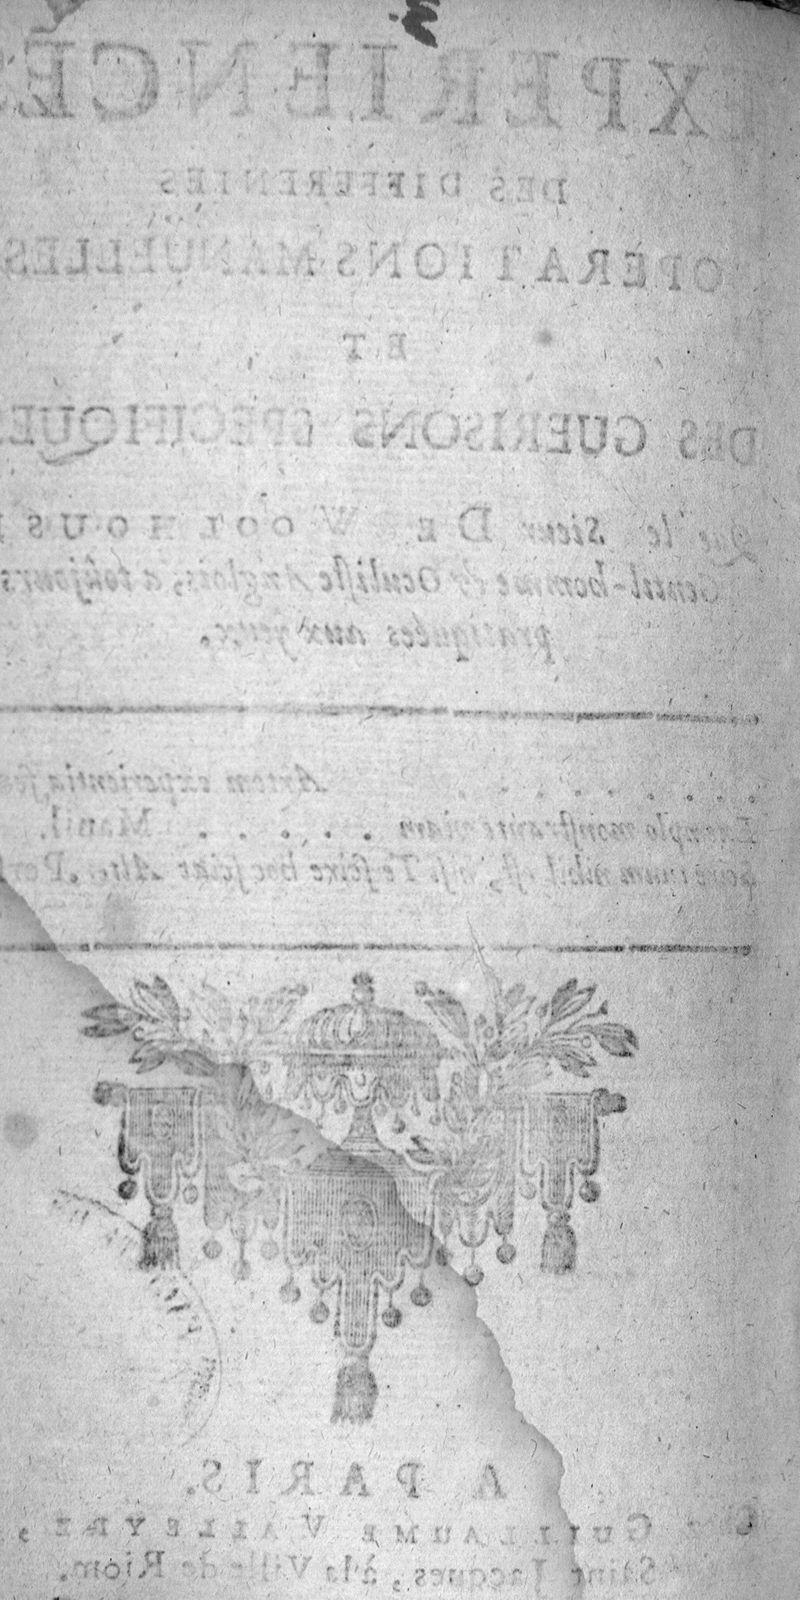 EXPERIENCES
DES DIFFERENTES
OPERATIONS MANUELLES,
ET
DES GUERISONS SPECIFIQUES
Que le Sieur DE WOOLHOUSE
Gentil-homme & Oculiste Anglois, a toûjours
pratiquées aux yeux.
. . . . . . . . Artem experientia fe
Exemplo monstrante viam . . . . . Manil.
nihil est, nisi Te scire hoc sciat Alter. Perf
A PARIS.
GUILLAUME VALLEYRE,
Saint Jacques, à la Ville de Riom.